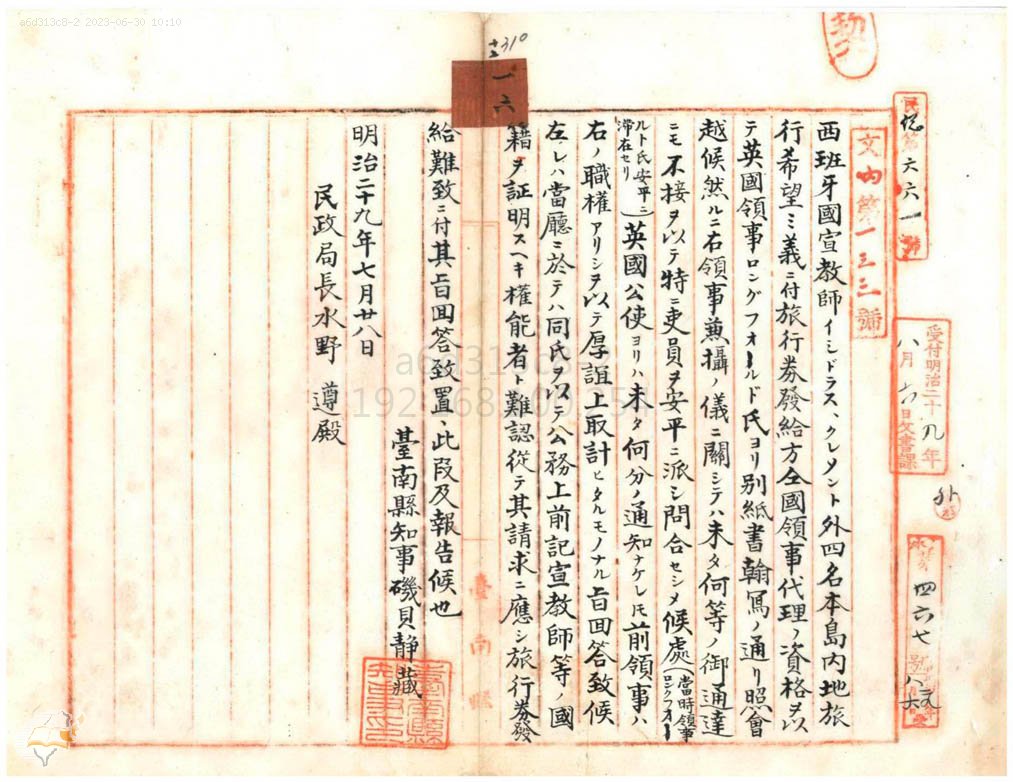 a6d313c8-2 2023-06-30 10:10
310
一六
民総第六六一號
文内第一三三號
受付明治二十九年
八月 日文書課
四六七號
西班牙國宣教師イシドラス、クレメント外四名本島内地旅
行希望ミ義ニ付旅行券發給方仝國領事代理ノ資格ヲ以
テ英國領事ロングフオールド氏ヨリ別紙書翰寫ノ通リ照會
越候然ルニ右領事兼攝ノ儀ニ關シテハ未タ何等ノ御通達
ニモ不接ヲ以テ特ニ吏員ヲ安平ニ派シ問合セシメ候處(當時領事ロングフオー
ルト氏安平ニ滞在セリ)英國公使ヨリハ未タ何分ノ通知ナケレモ前領事ハ
右ノ職權アリシヲ以テ厚誼上取計ヒタルモノナル旨回答致候
左レハ當廳ニ於テハ同氏ヲ以テ公務上前記宣教師等ノ國
籍ヲ証明スヘキ權能者ト難認從テ其請求ニ應シ旅行券發
給難致ニ付其旨回答致置、此段及報告候也
明治二十九年七月廿八日
臺南縣知事磯貝静藏
民政局長水野遵殿
臺南縣
a6d313c8-2